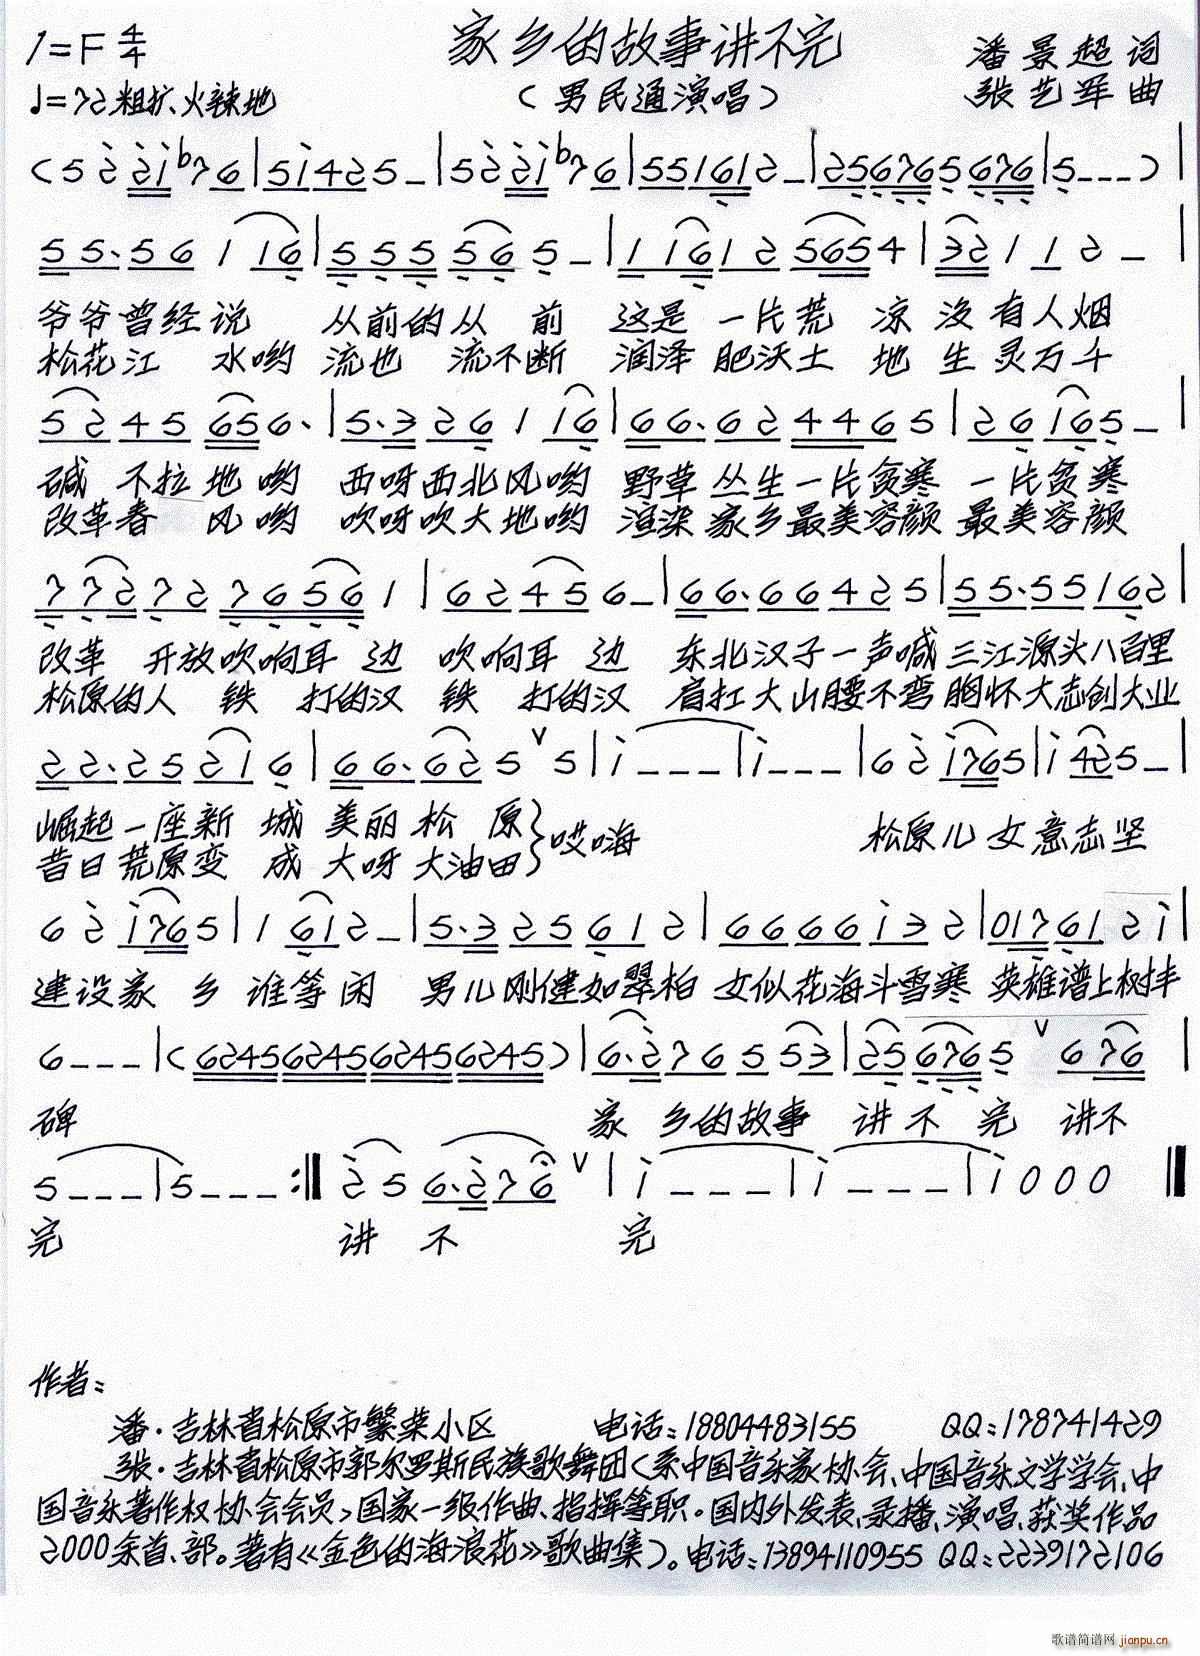 家乡的故事讲不完
1=F 4/4
潘景超 词
♩=72 粗犷、火辣地
（男民通演唱）
张艺军 曲
(5 2̇ 2̇1̇ b7 6 | 5 1̇ 4 2 5 – | 5 2̇ 2̇1̇ b7 6 | 5 5 1 6 1 2 – | 2 5 6 7 6 5 6 7 6 | 5 – – – ) |
5 5· 5 6 1 1 6 | 5 5 5 5 6 5 – | 1 1 6 1 2 5 6 5 4 | 3 2 1 1 2 – |
爷爷曾经说 从前的从前 这是一片荒凉没有人烟
松花江水哟流也流不断 润泽肥沃土地生灵万千
5 2 4 5 6 5 6· | 5· 3 2 6 1 1 6 | 6 6· 6 2 4 4 6 5 | 2 6 1 6 5 – |
碱不拉地哟 西呀西北风哟 野草丛生一片贫寒 一片贫寒
改革春风哟 吹呀吹大地哟 渲染家乡最美容颜 最美容颜
7 7 2 7 2 7 6 5 6 1 | 6 2 4 5 6 – | 6 6· 6 6 4 2 5 | 5 5· 5 5 1 6 2 |
改革开放吹响耳边 吹响耳边 东北汉子一声喊 三江源头八百里
松原的人铁打的汉 铁打的汉 肩扛大山腰不弯 胸怀大志创大业
2 2· 2 5 2 1 6 | 6 6· 6 2 5 ∨ 5 | 1̇ – – – | 1̇ – – – | 6 2̇ 1̇ 7 6 5 | 1̇ 4 2 5 – |
崛起一座新城 美丽松原 哎嗨 松原儿女意志坚
昔日荒原变成 大呀大油田
6 2̇ 1̇ 7 6 5 | 1 6 1 2 – | 5· 3 2 5 6 1 2 | 6 6 6 6 1̇ 3 2 | 0 1 7 6 1 2 1̇ |
建设家乡谁等闲 男儿刚健如翠柏 女似花海斗雪寒 英雄谱上树丰
6 – – – | (6245 6245 6245 6245) | 6· 2̇ 7 6 5 5 3 | 2 5 6 7 6 5 ∨ 6 7 6 |
碑 家乡的故事讲不完 讲不
5 – – – | 5 – – – :‖ 2̇ 5 6· 2̇ 7 6 ∨ | 1̇ – – – | 1̇ – – – | 1̇ 0 0 0 ‖
完 讲不完
作者：
潘·吉林省松原市繁荣小区 电话：18804483155 QQ：178741429
张·吉林省松原市郭尔罗斯民族歌舞团（系中国音乐家协会、中国音乐文学学会、中
国音乐著作权协会会员）国家一级作曲、指挥等职。国内外发表、录播、演唱、获奖作品
2000余首、部。著有《金色的海浪花》歌曲集）。电话：13894110955 QQ：2239172106
歌谱简谱网 jianpu.cn